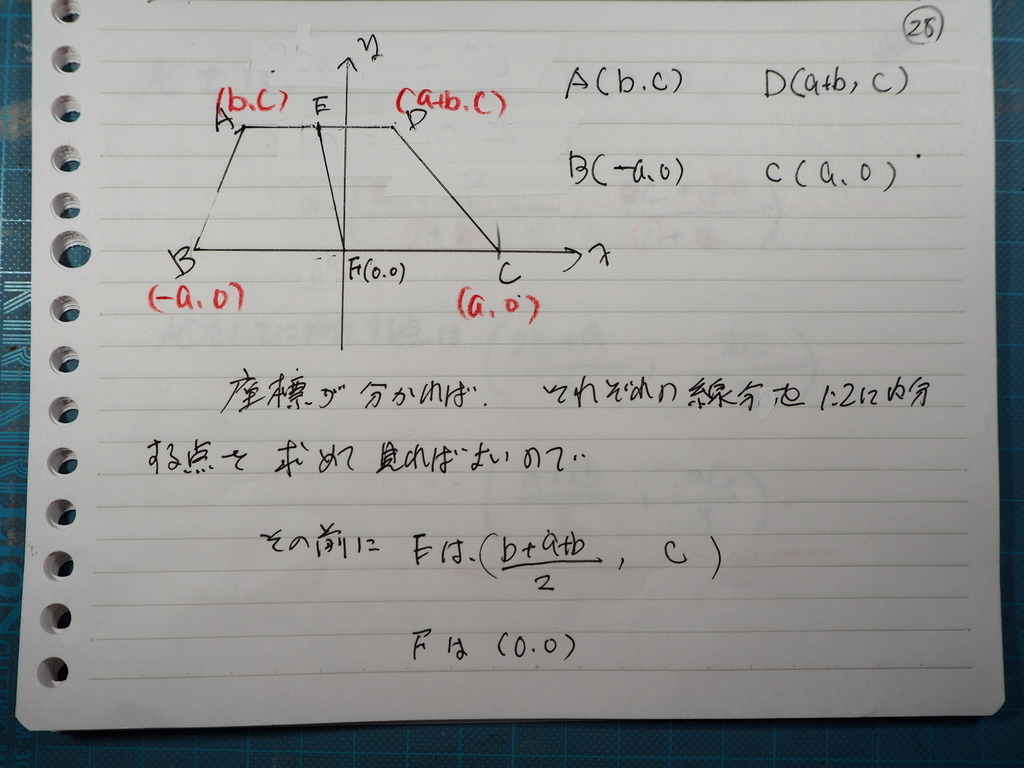 28)
y
(b.c) E (a+b.c)
A D
B F(0.0) C x
(-a.0) (a.0)
A(b.c) D(a+b, c)
B(-a.0) C(a.0)
座標が分かれば. それぞれの線分を1:2に内分
する点を求めて見ればよいので..
その前に Eは.(b+a+b/2, c)
Fは (0.0)